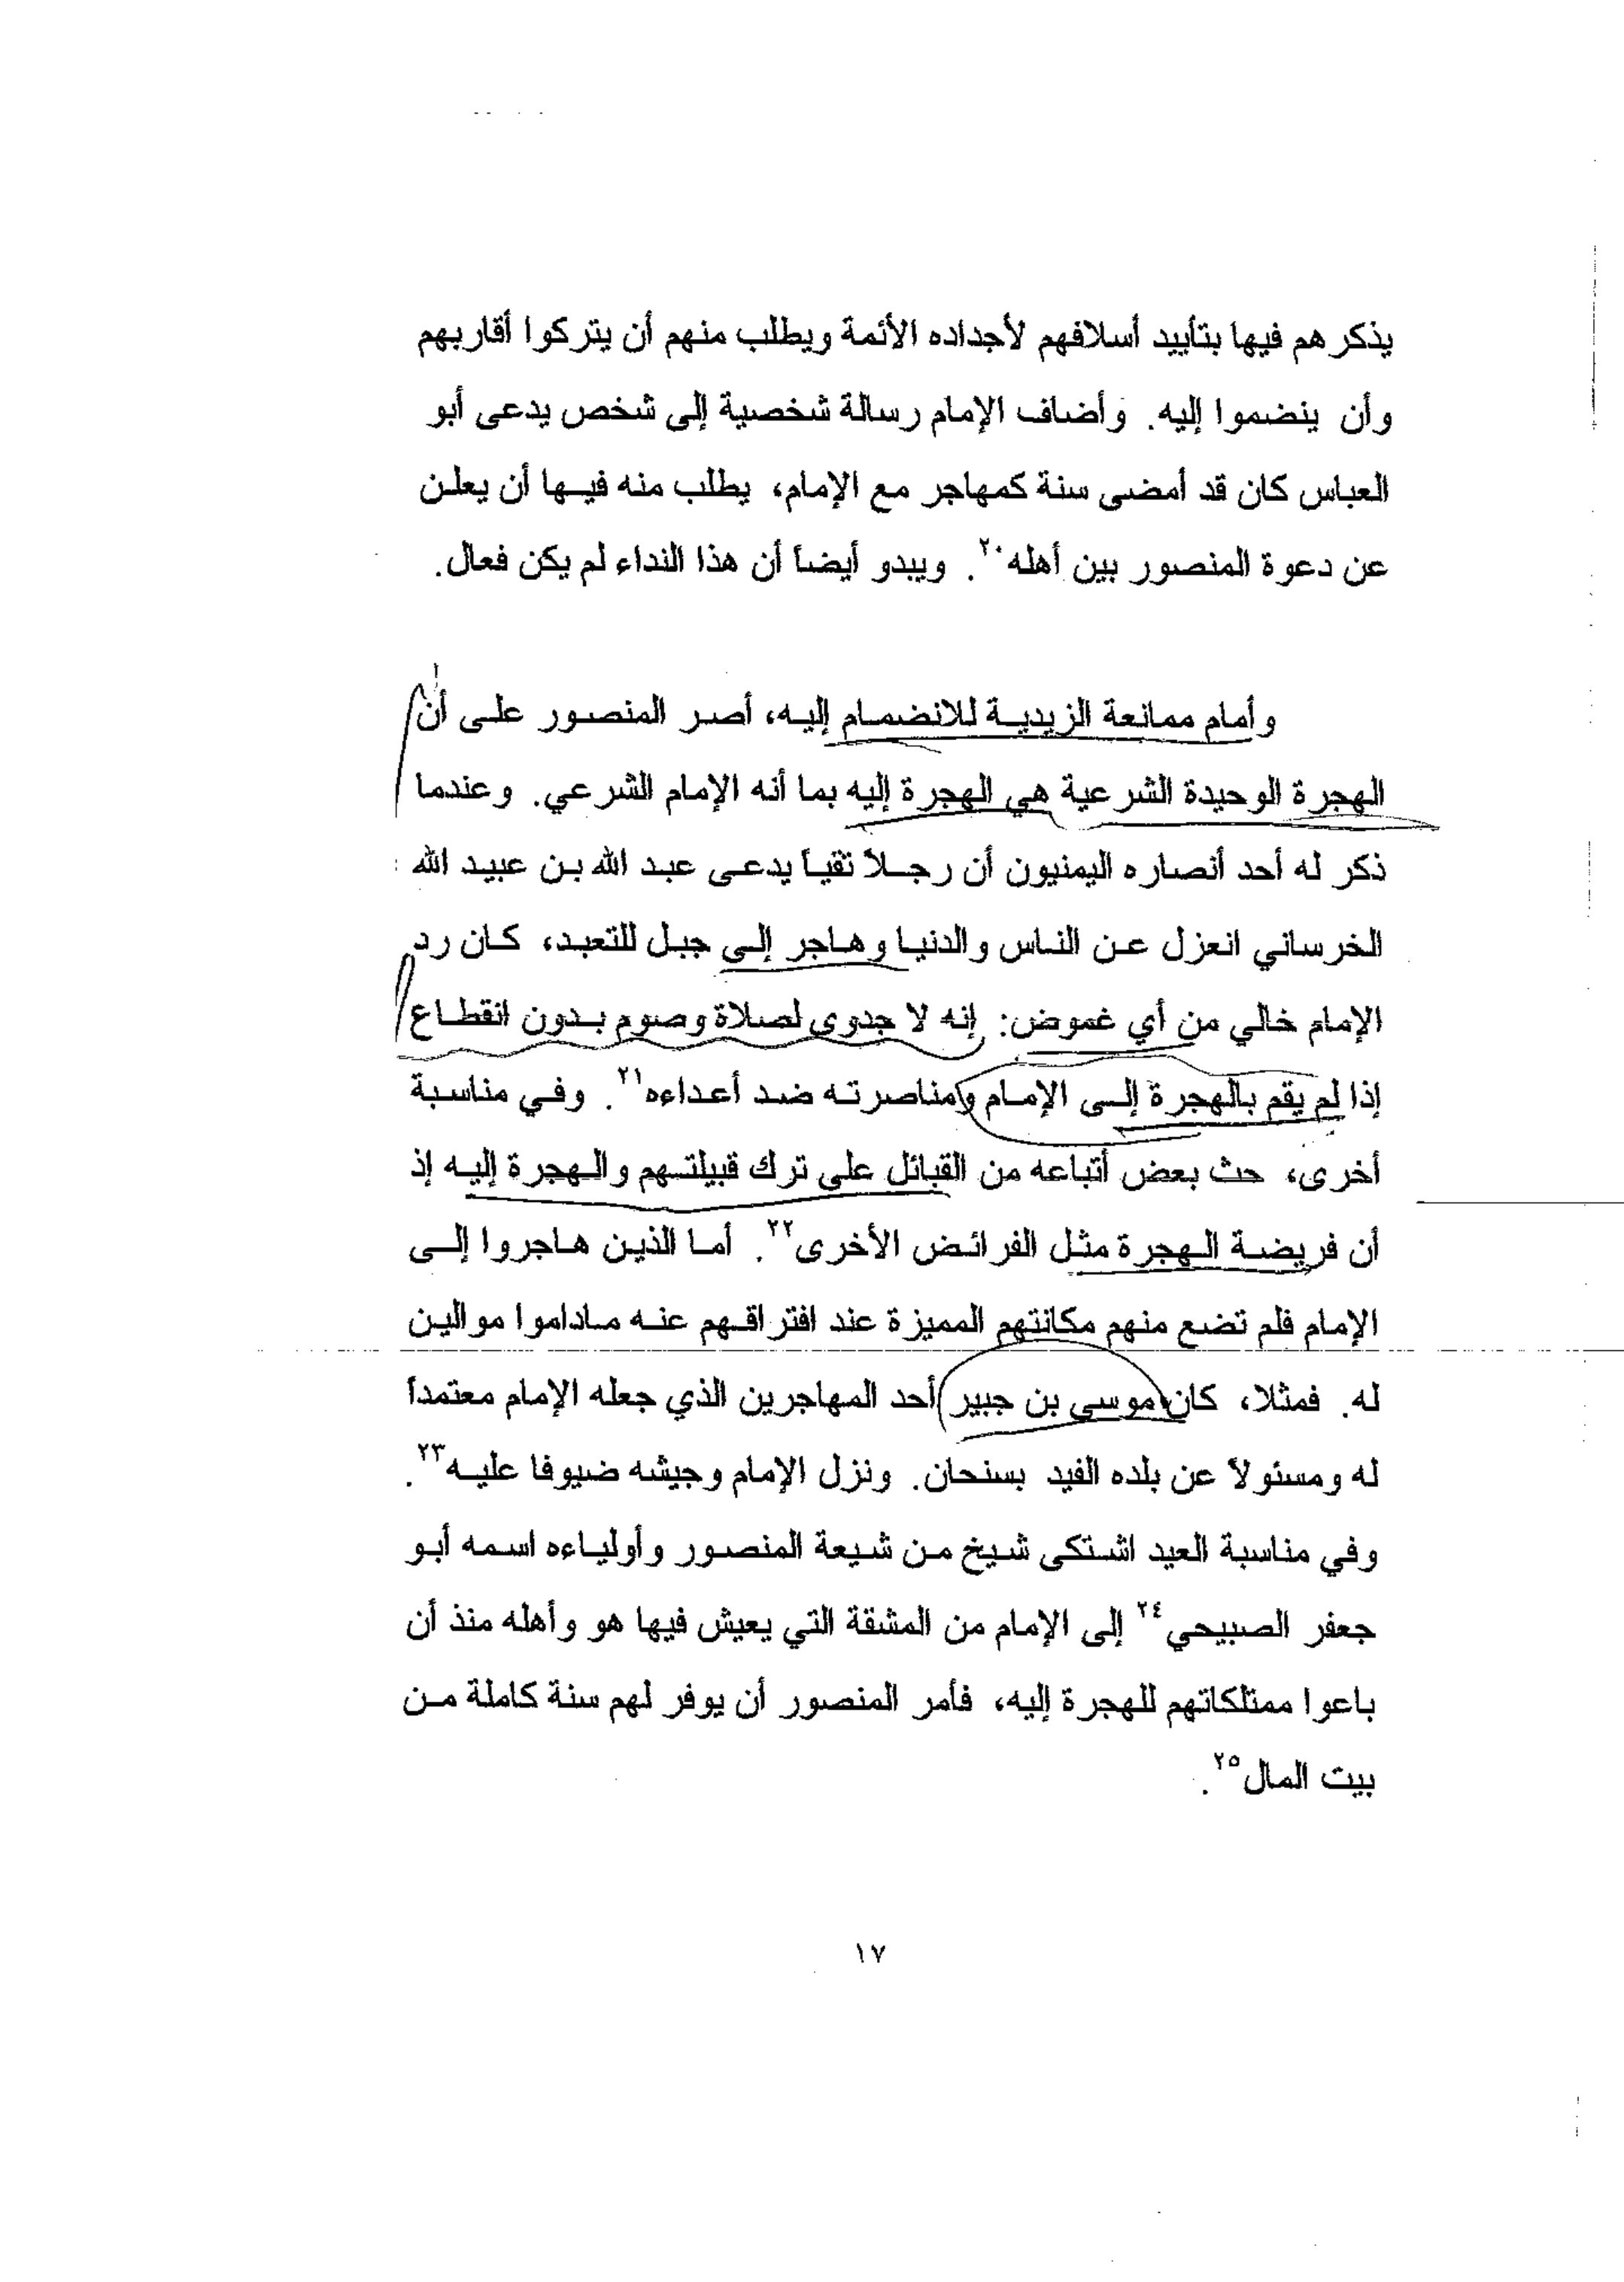 يذكرهم فيها بتأييد أسلافهم لأجداده الأئمة ويطلب منهم أن يتركوا أقاربهم
وأن ينضموا إليه. وأضاف الإمام رسالة شخصية إلى شخص يدعى أبو
العباس كان قد أمضى سنة كمهاجر مع الإمام، يطلب منه فيها أن يعلن
عن دعوة المنصور بين أهله٢٠. ويبدو أيضاً أن هذا النداء لم يكن فعال.
وأمام ممانعة الزيدية للانضمام إليه، أصر المنصور على أن
الهجرة الوحيدة الشرعية هي الهجرة إليه بما أنه الإمام الشرعي. وعندما
ذكر له أحد أنصاره اليمنيون أن رجلاً تقياً يدعى عبد الله بن عبيد الله
الخرساني انعزل عن الناس والدنيا وهاجر إلى جبل للتعبد، كان رد
الإمام خالي من أي غموض: إنه لا جدوى لصلاة وصوم بدون انقطاع
إذا لم يقم بالهجرة إلى الإمام ومناصرته ضد أعداءه٢١. وفي مناسبة
أخرى، حث بعض أتباعه من القبائل على ترك قبيلتهم والهجرة إليه إذ
أن فريضة الهجرة مثل الفرائض الأخرى٢٢. أما الذين هاجروا إلى
الإمام فلم تضع منهم مكانتهم المميزة عند افتراقهم عنه ماداموا موالين
له. فمثلا، كان موسى بن جبير أحد المهاجرين الذي جعله الإمام معتمداً
له ومسئولاً عن بلده الفيد بسنحان. ونزل الإمام وجيشه ضيوفا عليه٢٣.
وفي مناسبة العيد اشتكى شيخ من شيعة المنصور وأولياءه اسمه أبو
جعفر الصبيحي٢٤ إلى الإمام من المشقة التي يعيش فيها هو وأهله منذ أن
باعوا ممتلكاتهم للهجرة إليه، فأمر المنصور أن يوفر لهم سنة كاملة من
بيت المال٢٥.
١٧